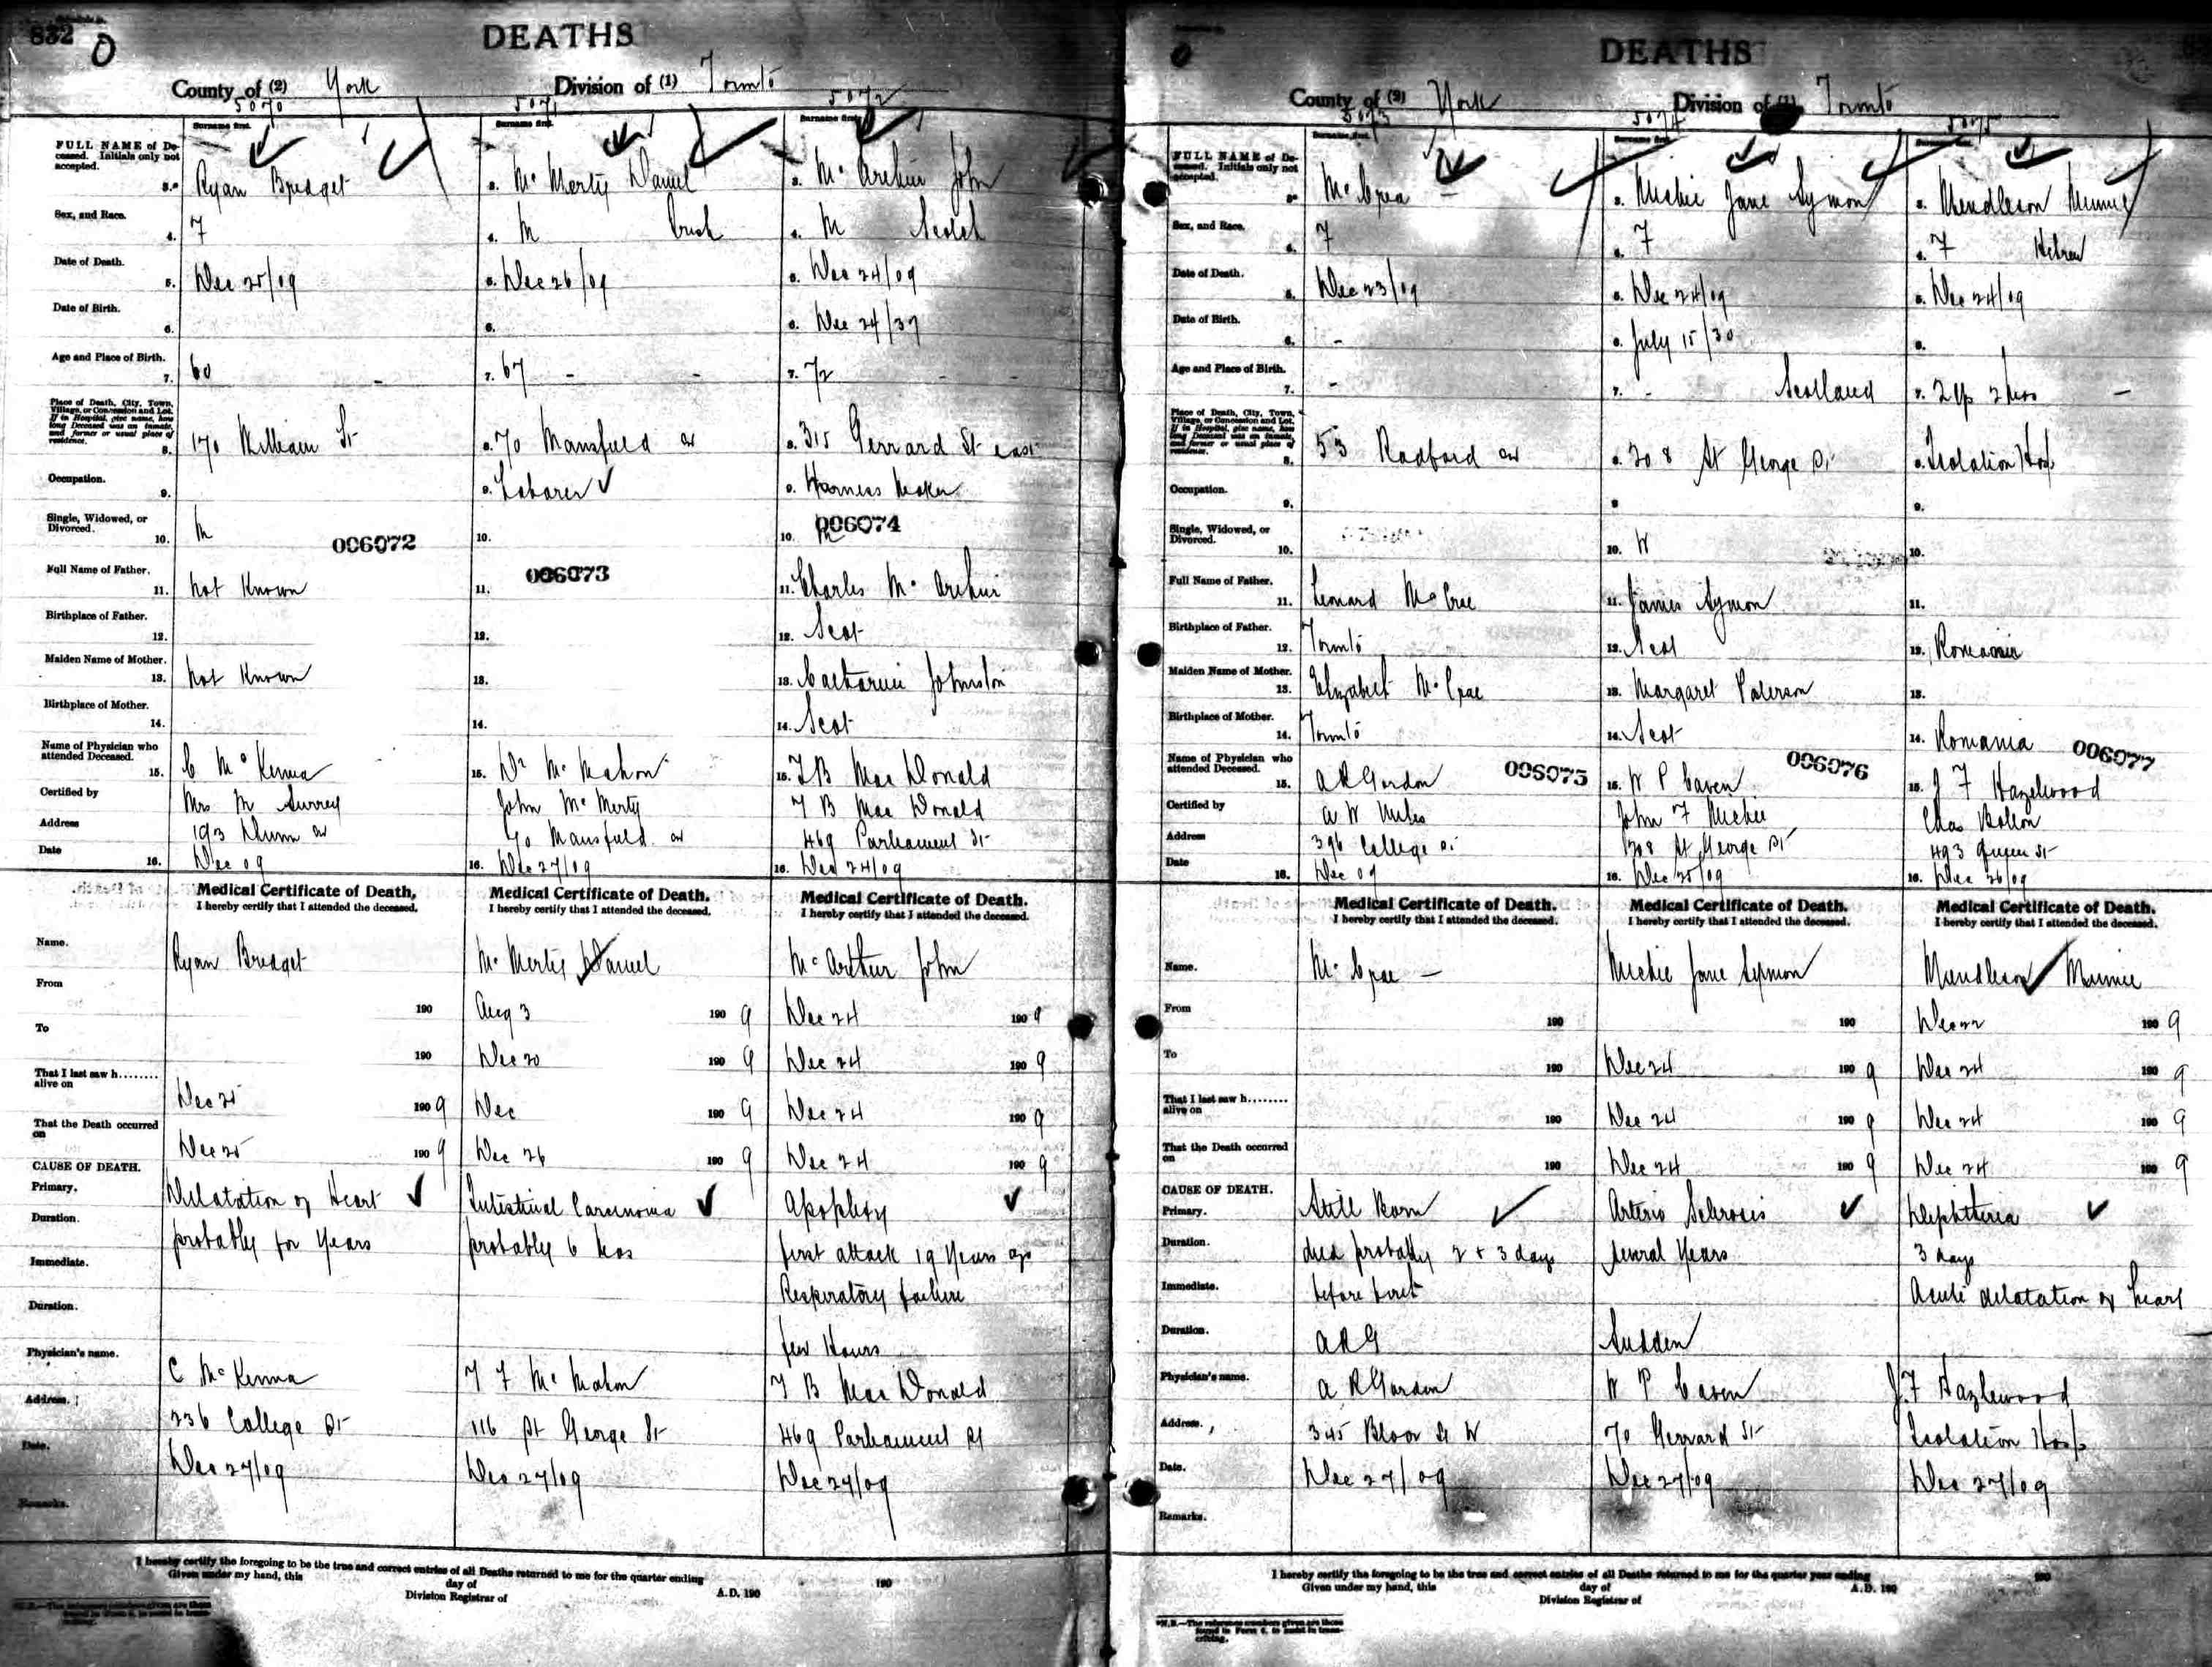 832
DEATHS
County of (2) York Division of (1) Toronto
5070 5071 5072
Surname first. Surname first. Surname first.
FULL NAME of Deceased. Initials only not accepted. 3. Ryan Bridget 3. Mc Merty Daniel 3. Mc Arthur John
Sex, and Race. 4. F 4. M Irish 4. M Scotch
Date of Death. 5. Dec 25/09 5. Dec 26/09 5. Dec 24/09
Date of Birth. 6. 6. 6. Dec 24/37
Age and Place of Birth. 7. 60 - 7. 67 - - 7. 72 - -
Place of Death, City, Town, Village, or Concession and Lot. If in Hospital, give name, how long Deceased was an inmate, and former or usual place of residence. 8. 170 William St 8. 70 Mansfield av 8. 315 Gerrard St east
Occupation. 9. 9. Laborer 9. Harness Maker
Single, Widowed, or Divorced. 10. M 006072 10. 10. M 006074
Full Name of Father. 11. not Known 11. 006073 11. Charles Mc Arthur
Birthplace of Father. 12. 12. 12. Scot
Maiden Name of Mother. 13. not Known 13. 13. Catharine Johnston
Birthplace of Mother. 14. 14. 14. Scot
Name of Physician who attended Deceased. 15. C McKenna 15. Dr McMahon 15. T B MacDonald
Certified by Mrs M Surrey John McMerty T B MacDonald
Address 193 Dunn av 70 Mansfield av 469 Parliament St
Date 16. Dec 09 16. Dec 27/09 16. Dec 24/09
Medical Certificate of Death, Medical Certificate of Death. Medical Certificate of Death.
I hereby certify that I attended the deceased. I hereby certify that I attended the deceased. I hereby certify that I attended the deceased.
Name. Ryan Bridget Mc Merty Daniel Mc Arthur John
From 190 Aug 3 1909 Dec 24 1909
To 190 Dec 20 1909 Dec 24 1909
That I last saw h........ alive on Dec 25 1909 Dec 1909 Dec 24 1909
That the Death occurred on Dec 25 1909 Dec 26 1909 Dec 24 1909
CAUSE OF DEATH.
Primary. Dilatation of Heart Intestinal Carcinoma Apoplexy
Duration. probably for Years probably 6 mos first attack 19 Years ago
Immediate. Respiratory failure
Duration. few Hours
Physician's name. C McKenna T F McMahon T B MacDonald
Address. 236 College St 116 St George St 469 Parliament St
Date. Dec 27/09 Dec 27/09 Dec 27/09
Remarks.
I hereby certify the foregoing to be the true and correct entries of all Deaths returned to me for the quarter ending 190
Given under my hand, this day of A.D. 190
Division Registrar of
DEATHS
County of (2) York Division of (1) Toronto
5073 5074 5075
Surname first. Surname first. Surname first.
FULL NAME of Deceased. Initials only not accepted. 3. McCrea - 3. Michie Jane Symon 3. Mendleson Minnie
Sex, and Race. 4. F 4. F 4. F Hebrew
Date of Death. 5. Dec 23/09 5. Dec 24/09 5. Dec 24/09
Date of Birth. 6. - 6. July 15/30 6.
Age and Place of Birth. 7. - 7. - Scotland 7. 2 yrs 2 mos -
Place of Death, City, Town, Village, or Concession and Lot. If in Hospital, give name, how long Deceased was an inmate, and former or usual place of residence. 8. 53 Radford av 8. 208 St George St 8. Isolation Hosp
Occupation. 9. 9 9.
Single, Widowed, or Divorced. 10. 10. W 10.
Full Name of Father. 11. Leonard McCrae 11. James Symon 11.
Birthplace of Father. 12. Toronto 12. Scot 12. Romania
Maiden Name of Mother. 13. Elizabeth McCrae 13. Margaret Paterson 13.
Birthplace of Mother. 14. Toronto 14. Scot 14. Romania
Name of Physician who attended Deceased. 15. A R Gordon 006075 15. W P Caven 006076 15. J F Hazelwood 006077
Certified by A W Miles John F Michie Chas Bolton
Address 396 College St 208 St George St 493 Queen St
Date 16. Dec 09 16. Dec 25/09 16. Dec 26/09
Medical Certificate of Death. Medical Certificate of Death. Medical Certificate of Death.
I hereby certify that I attended the deceased. I hereby certify that I attended the deceased. I hereby certify that I attended the deceased.
Name. McCrae - Michie Jane Symon Mendleson Minnie
From 190 190 Dec 22 1909
To 190 Dec 24 1909 Dec 24 1909
That I last saw h........ alive on 190 Dec 24 1909 Dec 24 1909
That the Death occurred on 190 Dec 24 1909 Dec 24 1909
CAUSE OF DEATH.
Primary. Still Born Arterio Sclerosis Diphtheria
Duration. died probably 2 + 3 days several Years 3 days
Immediate. before birth Acute dilatation of heart
Duration. ARG Sudden
Physician's name. A R Gordon W P Caven J.F Hazlewood
Address. 345 Bloor St W 70 Gerrard St Isolation Hosp
Date. Dec 27/09 Dec 27/09 Dec 27/09
Remarks.
I hereby certify the foregoing to be the true and correct entries of all Deaths returned to me for the quarter year ending 190
Given under my hand, this day of A.D. 190
Division Registrar of
*N.B.—The reference numbers given are those found in Form 6, to assist in transcribing.